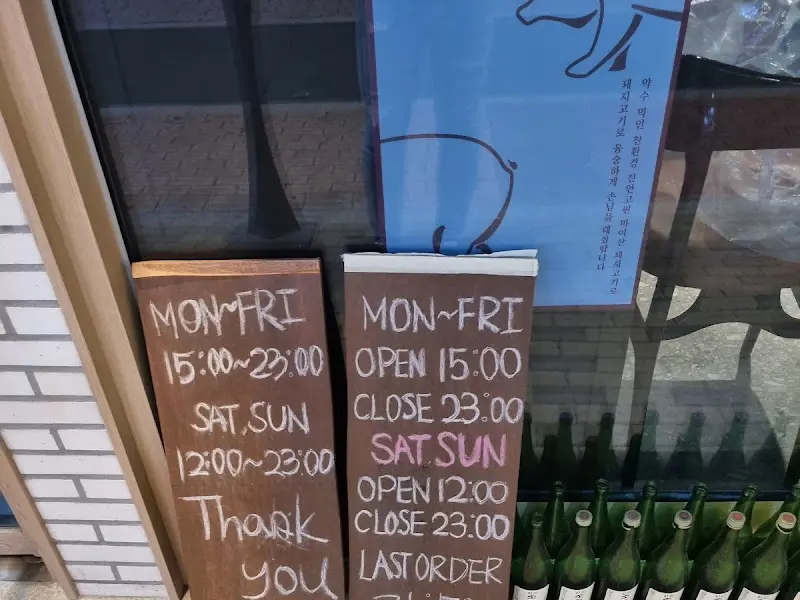 MON~FRI
15:00~23:00
SAT,SUN
12:00~23:00
Thank
you
MON~FRI
OPEN 15:00
CLOSE 23:00
SAT.SUN
OPEN 12:00
CLOSE 23:00
LAST ORDER
약수 먹인 친환경 진안고원 마이산 돼지고기로
돼지고기로 풍성하게 손님을 대접합니다